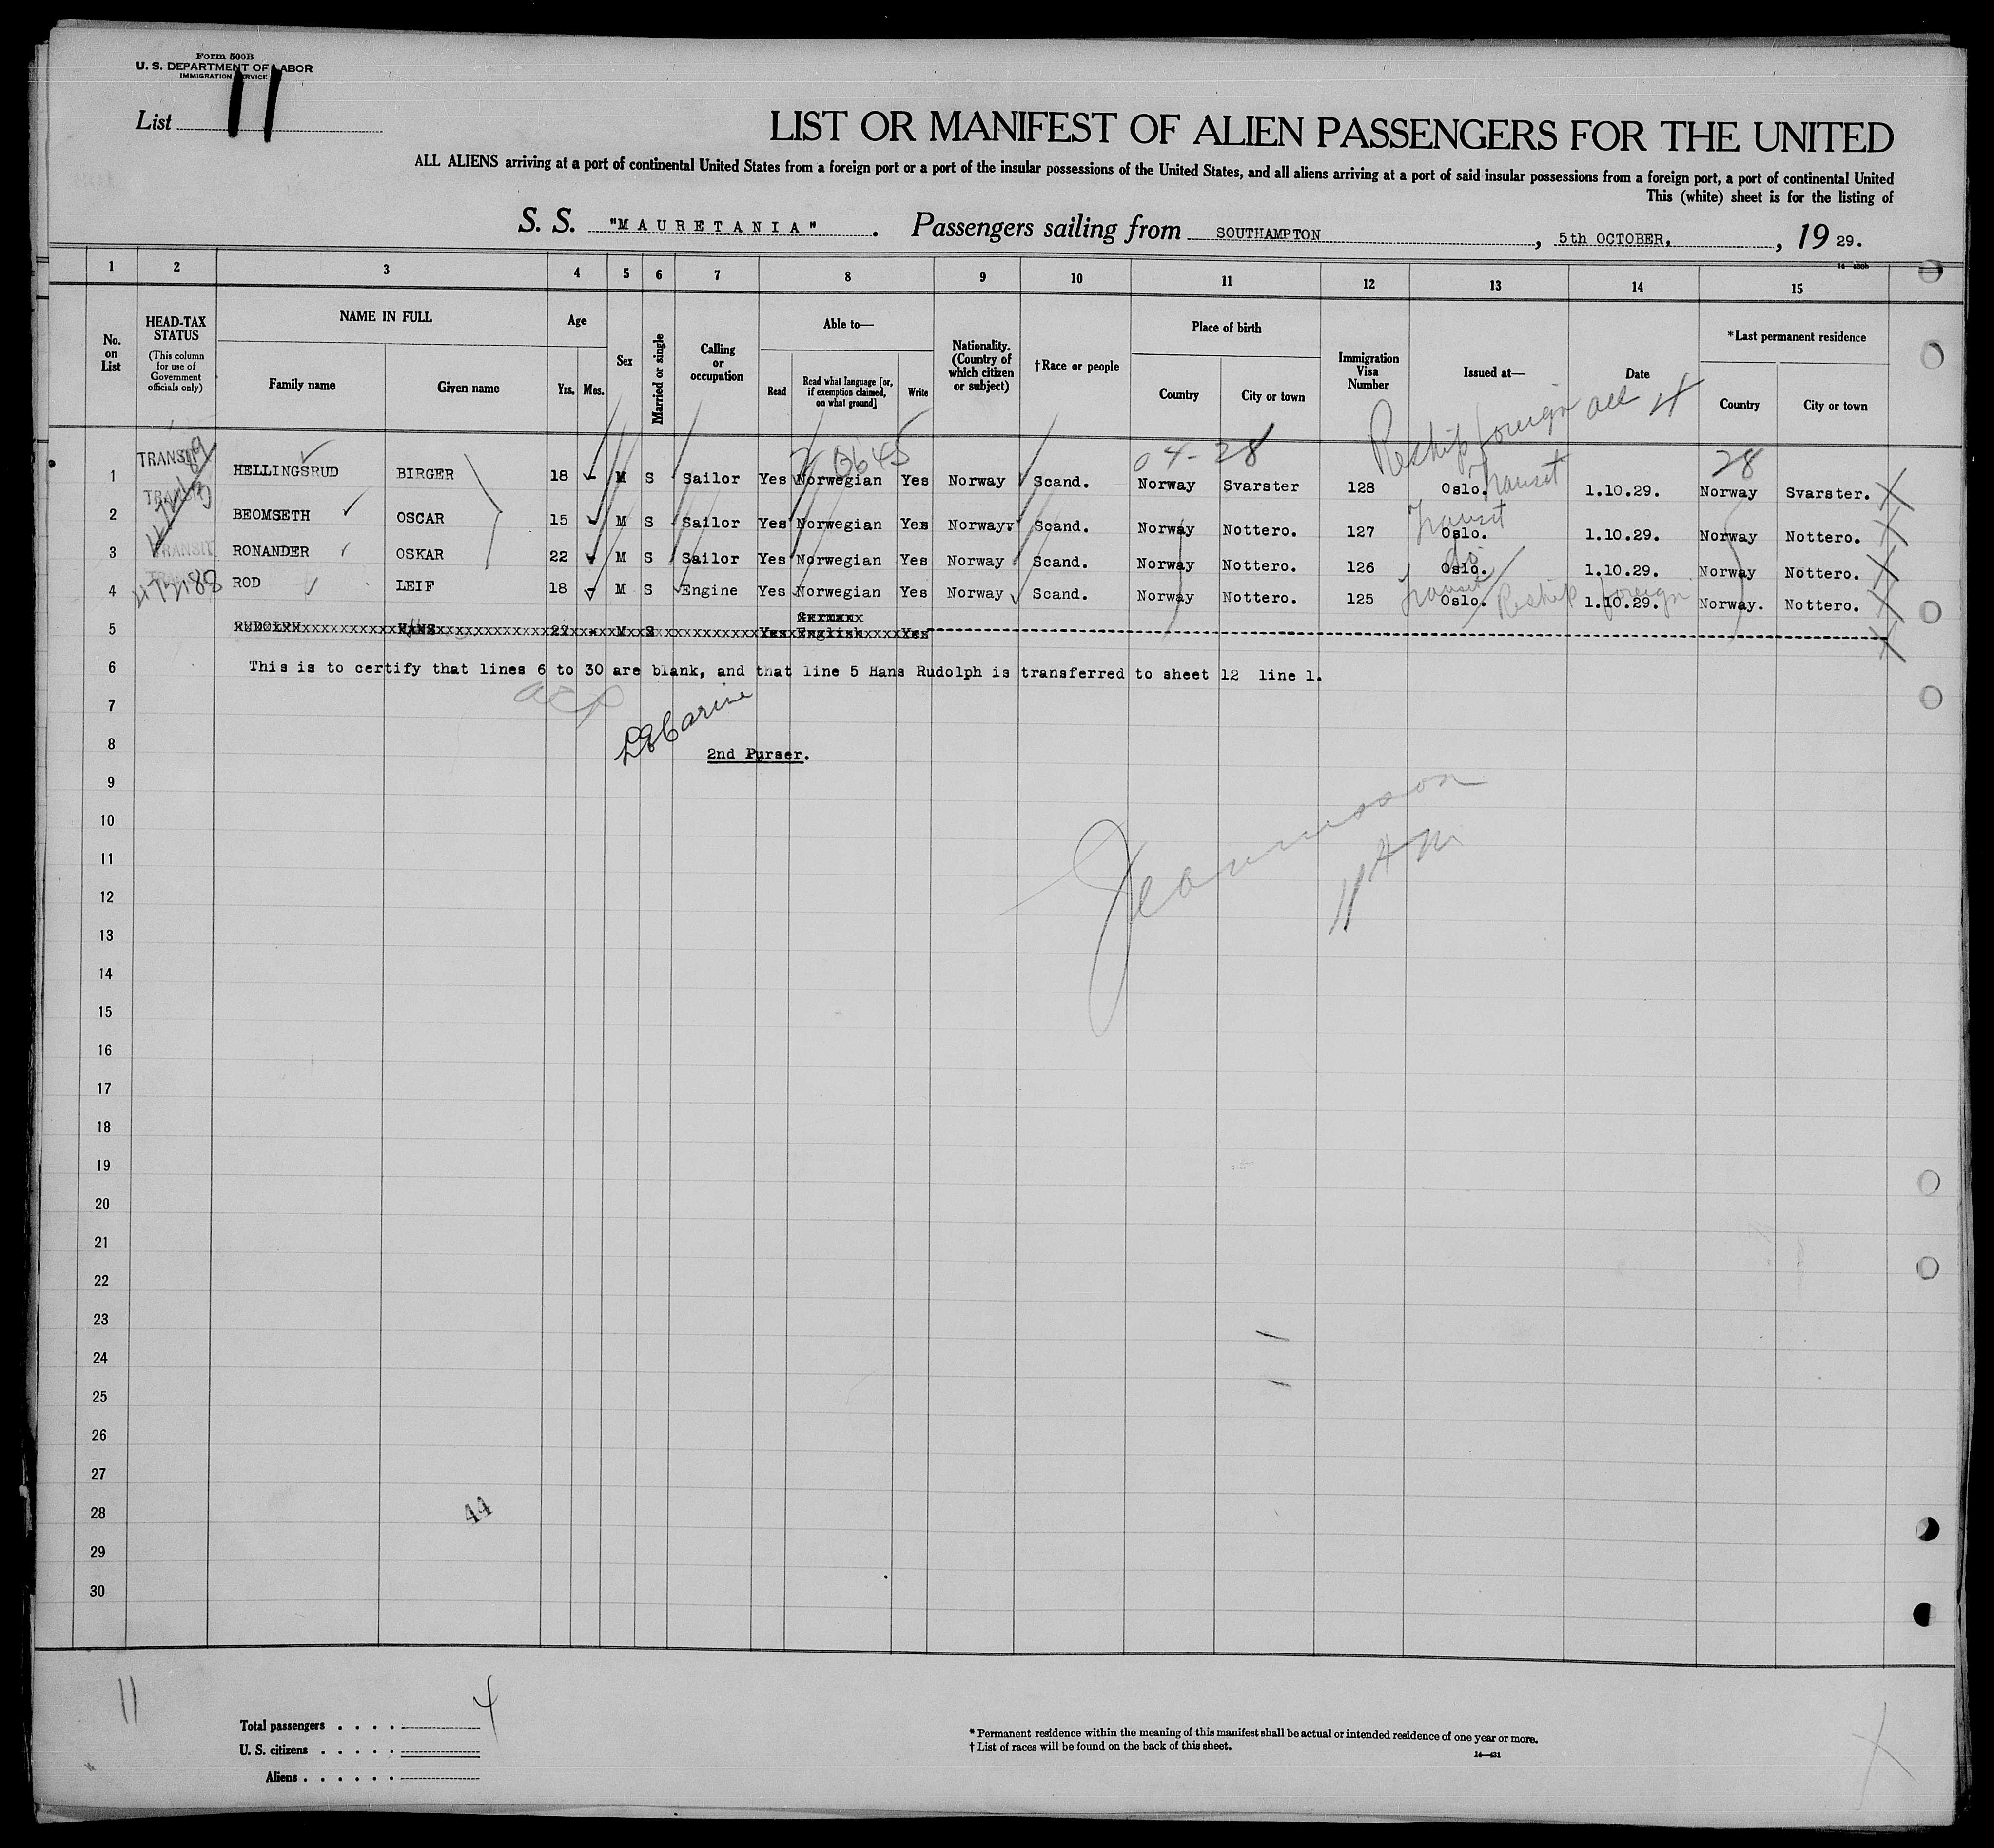 Form 500B
U. S. DEPARTMENT OF LABOR
IMMIGRATION SERVICE
List 11
LIST OR MANIFEST OF ALIEN PASSENGERS FOR THE UNITED
ALL ALIENS arriving at a port of continental United States from a foreign port or a port of the insular possessions of the United States, and all aliens arriving at a port of said insular possessions from a foreign port, a port of continental United
This (white) sheet is for the listing of
S. S. "MAURETANIA" . Passengers sailing from SOUTHAMPTON , 5th OCTOBER, , 19 29.
1 2 3 4 5 6 7 8 9 10 11 12 13 14 15
No. on List
HEAD-TAX STATUS
(This column for use of Government officials only)
NAME IN FULL
Family name
Given name
Age
Yrs. Mos.
Sex
Married or single
Calling or occupation
Able to—
Read
Read what language [or, if exemption claimed, on what ground]
Write
Nationality. (Country of which citizen or subject)
†Race or people
Place of birth
Country
City or town
Immigration Visa Number
Issued at—
Date
*Last permanent residence
Country
City or town
Reship foreign all 4
04-28
28
1 TRANSIT HELLINGSRUD BIRGER 18 - M S Sailor Yes Norwegian Yes Norway Scand. Norway Svarster 128 Oslo. Transit 1.10.29. Norway Svarster. X
2 TRANSIT BEOMSETH OSCAR 15 M S Sailor Yes Norwegian Yes Norway Scand. Norway Nottero. 127 Transit Oslo. 1.10.29. Norway Nottero. X
3 TRANSIT RONANDER OSKAR 22 M S Sailor Yes Norwegian Yes Norway Scand. Norway Nottero. 126 do Oslo. 1.10.29. Norway Nottero. X
4 ROD LEIF 18 - M S Engine Yes Norwegian Yes Norway Scand. Norway Nottero. 125 Transit Oslo. Reship foreign 1.10.29. Norway. Nottero. X
5 RUDOLPH HANS 27 - M S Yes German English Yes X
6 This is to certify that lines 6 to 30 are blank, and that line 5 Hans Rudolph is transferred to sheet 12 line 1.
7
8 2nd Purser.
9
10
11
12
13
14
15
16
17
18
19
20
21
22
23
24
25
26
27
28 44
29
30
11
Total passengers . . . . 4
U. S. citizens . . . . .
Aliens . . . . . .
* Permanent residence within the meaning of this manifest shall be actual or intended residence of one year or more.
† List of races will be found on the back of this sheet.
14—431